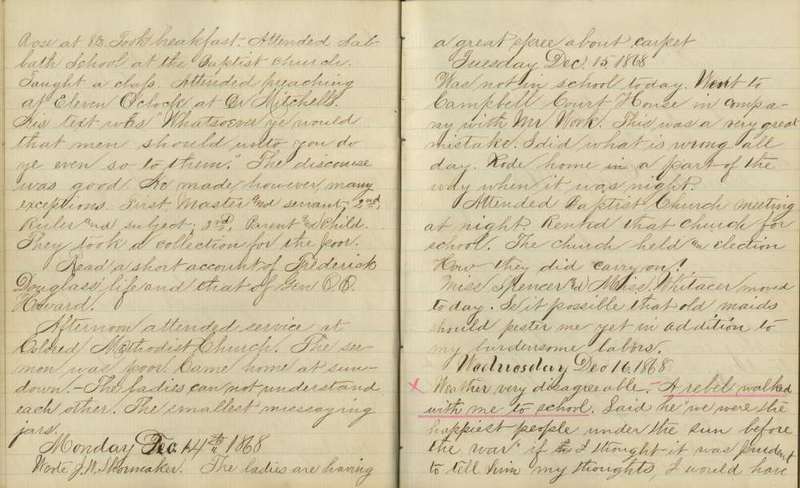 Rose at 8½. Took breakfast. Attended Sab-
bath School at the Baptist church.
Taught a class. Attended preaching
at Eleven O'clock at Mitchells.
His text was "Whatsoever ye would
that men should unto you do
ye even so to them." The discourse
was good. He made, however, many
exceptions. First Master and servant; 2nd,
Ruler and subject; 3rd, Parent and child.
They took a collection for the poor.
Read a short account of Frederick
Douglass' life and that of Gen O. O.
Howard.
Afternoon attended service at
Colored Methodist Church. The ser-
mon was poor. Came home at sun-
down. - The ladies can not understand
each other. The smallest missaying
jars.
Monday Dec. 14th 1868
Wrote J. W. Shoemaker. The ladies are having
a great spree about carpet
Tuesday Dec. 15 1868
Was not in school today. Went to
Campbell Court House in compa-
ny with Mr Work. This was a very great
mistake. I did what is wrong all
day. Rode home in a part of the
way when it was night.
Attended Baptist Church meeting
at night Rented that church for
school. The church held an election
How they did carry on!
Miss Spencer and Miss Whitacer moved
today. Is it possible that old maids
should pester me yet in addition to
my burdensome labors.
Wednesday Dec 16 1868
x Weather very disagreeable. - A rebel walked
with me to school. Said he "we were the
happiest people under the sun before
the war" if I thought it was prudent
to tell him my thoughts, I would have